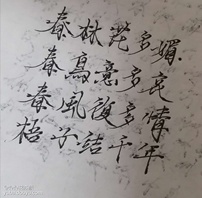 春林花多媚
春鳥意多哀
春風復多情
梧子结千年